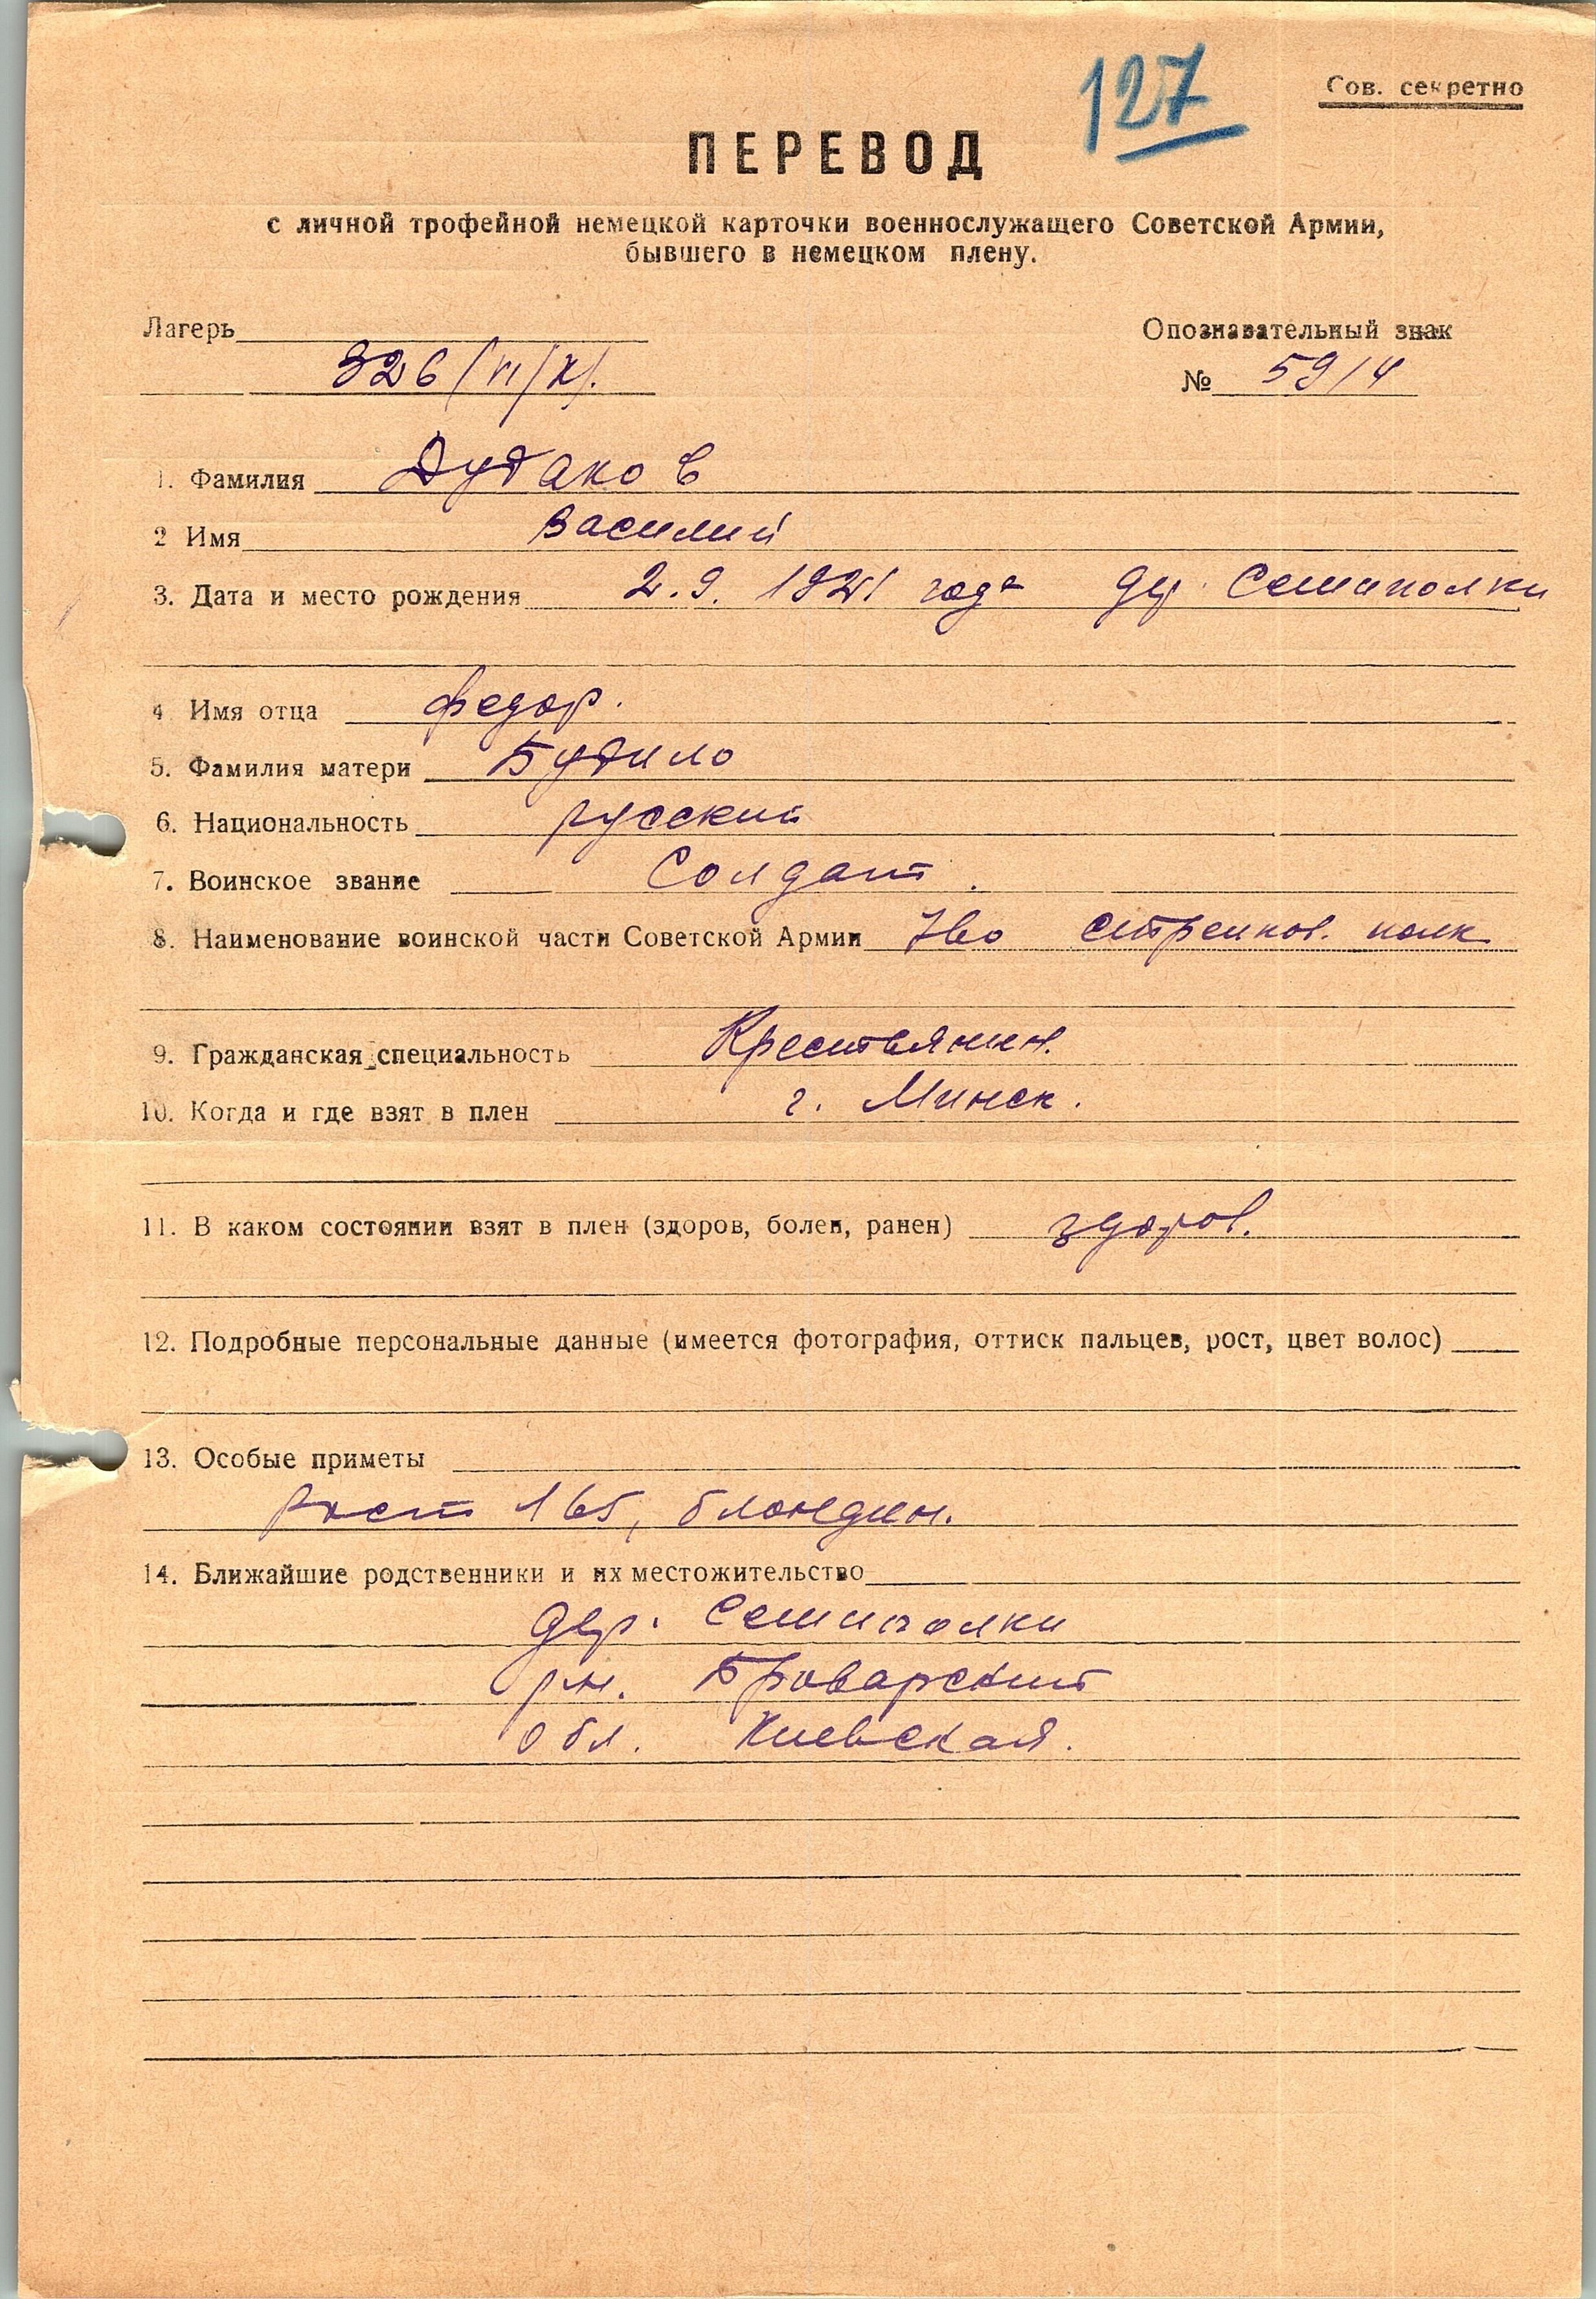 127
Сов. секретно
ПЕРЕВОД
с личной трофейной немецкой карточки военнослужащего Советской Армии,
бывшего в немецком плену.
Лагерь
326/VI/К/.
Опознавательный знак
№ 59/4
1. Фамилия Дудаков
2 Имя Василий
3. Дата и место рождения 2.9.1921 года дер. Семиполки
4 Имя отца Федор.
5. Фамилия матери Будило
6. Национальность русский
7. Воинское звание Солдат.
8. Наименование воинской части Советской Армии стрелков. полк
9. Гражданская специальность Крестьянин.
10. Когда и где взят в плен г. Минск.
11. В каком состоянии взят в плен (здоров, болен, ранен) здоров.
12. Подробные персональные данные (имеется фотография, оттиск пальцев, рост, цвет волос)
13. Особые приметы
Рост 165, блондин.
14. Ближайшие родственники и их местожительство
дер. Семиполки
р-н. Броварский
обл. Киевская.